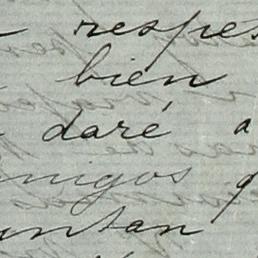 respe
bien
daré a
migos q
untan